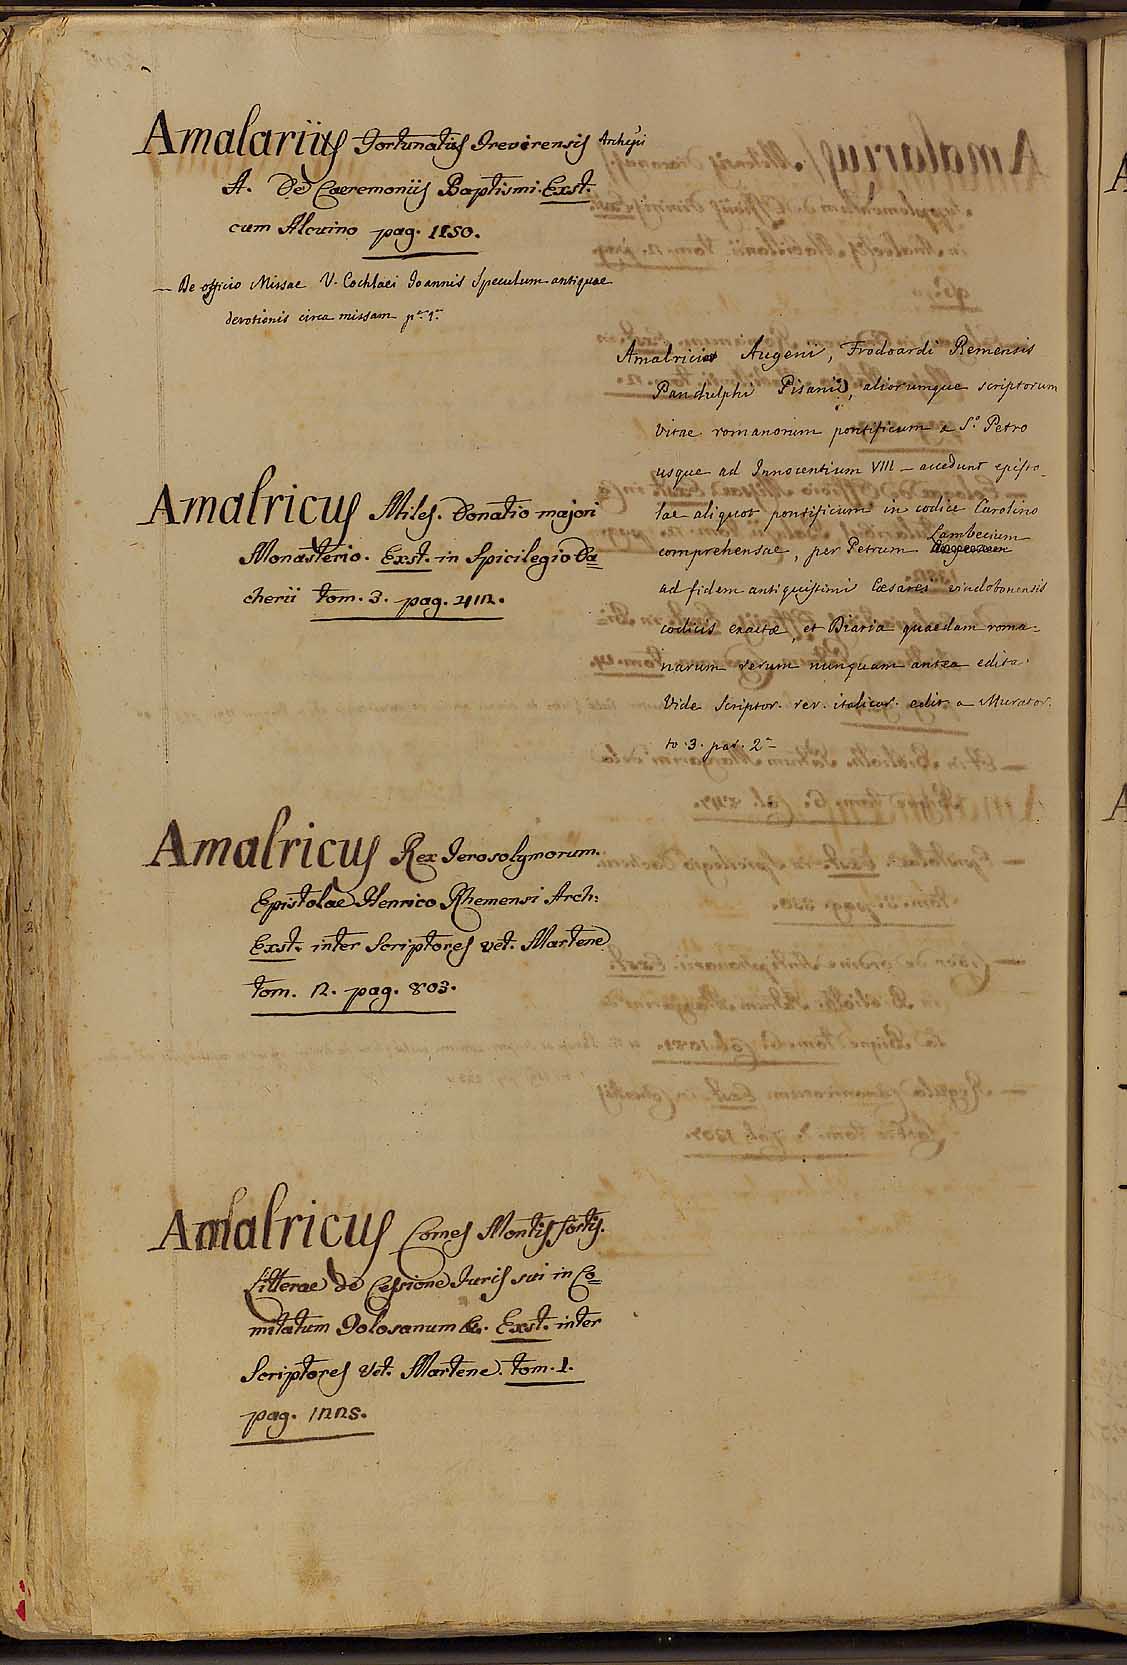 Amalarius Fortunatus Treverensis Archepi
A. De Caeremoniis Baptismi. Exst.
cum Alcuino pag. 1150.
— De officio Missae V. Cochlaei Joannis Speculum antiquae
devotionis circa missam
Amalricus Miles. Donatio majori
Monasterio. Exst. in Spicilegio Da=
cherii tom. 3. pag. 412.
Amalricus Rex Jerosolymorum.
Epistolae Henrico Rhemensi Arch:
Exst. inter Scriptores vet. Martene
tom. 2. pag. 803.
Amalricus Comes Montis fortis.
Litterae de Cessione Juris sui in Co=
mitatum Tolosanum &c. Exst. inter
Scriptores Vet. Martene. tom. 1.
pag. 1225.
Amalrici Augeni, Frodoardi Remensis
Pandulphi Pisani, aliorumque scriptorum
Vitae romanorum pontificum a S.o Petro
usque ad Innocentium VIII — accedunt episto-
lae aliquot pontificum in codice Carolino
comprehensae, per Petrum Lambecium
ad fidem antiquissimi Cæsarei vindobonensis
codicis exactæ, et Diaria quaedam roma-
narum rerum nunquam antea edita.
Vide Scriptor. rer. italicar. edit. a Murator.
to. 3. par. 2.a